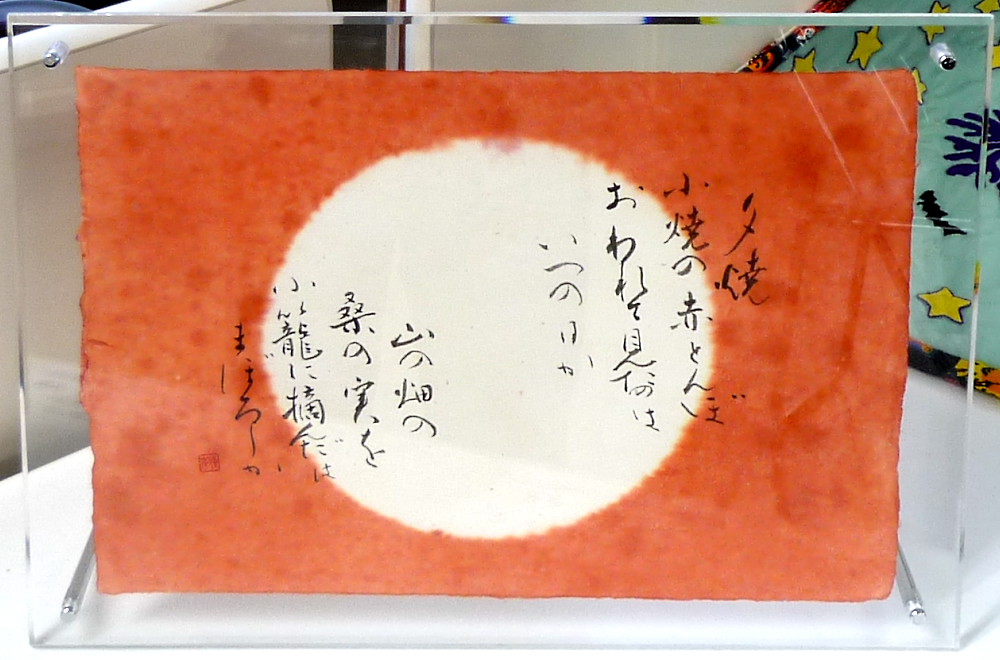 夕焼
小焼の赤とんぼ
おわれて見たのは
いつの日か
山の畑の
桑の実を
小籠に摘んだは
まぼろしか